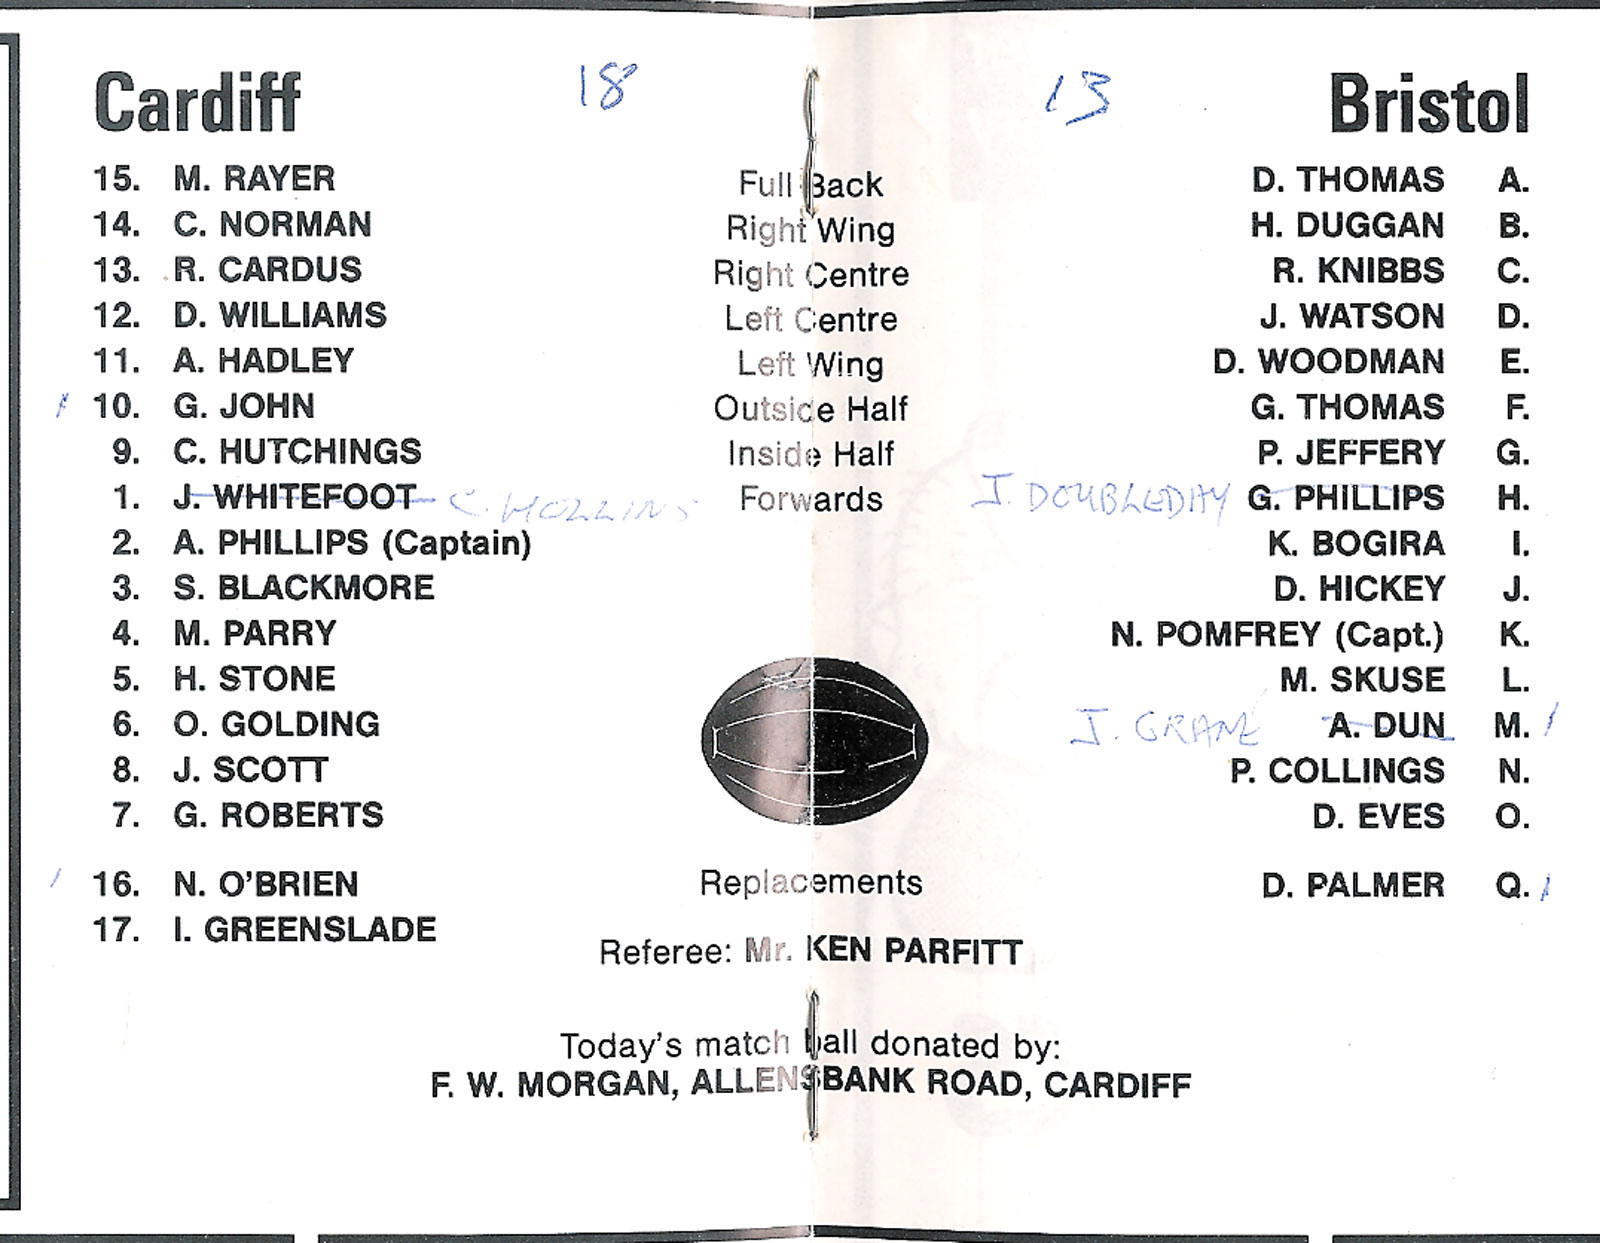 Cardiff 18 13 Bristol
15. M. RAYER Full Back D. THOMAS A.
14. C. NORMAN Right Wing H. DUGGAN B.
13. R. CARDUS Right Centre R. KNIBBS C.
12. D. WILLIAMS Left Centre J. WATSON D.
11. A. HADLEY Left Wing D. WOODMAN E.
10. G. JOHN Outside Half G. THOMAS F.
9. C. HUTCHINGS Inside Half P. JEFFERY G.
1. J. WHITEFOOT C. HOLLINS Forwards J. DOUBLEDAY G. PHILLIPS H.
2. A. PHILLIPS (Captain) K. BOGIRA I.
3. S. BLACKMORE D. HICKEY J.
4. M. PARRY N. POMFREY (Capt.) K.
5. H. STONE M. SKUSE L.
6. O. GOLDING J. GRANE A. DUN M.
8. J. SCOTT P. COLLINGS N.
7. G. ROBERTS D. EVES O.
16. N. O'BRIEN Replacements D. PALMER Q.
17. I. GREENSLADE
Referee: Mr. KEN PARFITT
Today's match ball donated by:
F. W. MORGAN, ALLENSBANK ROAD, CARDIFF